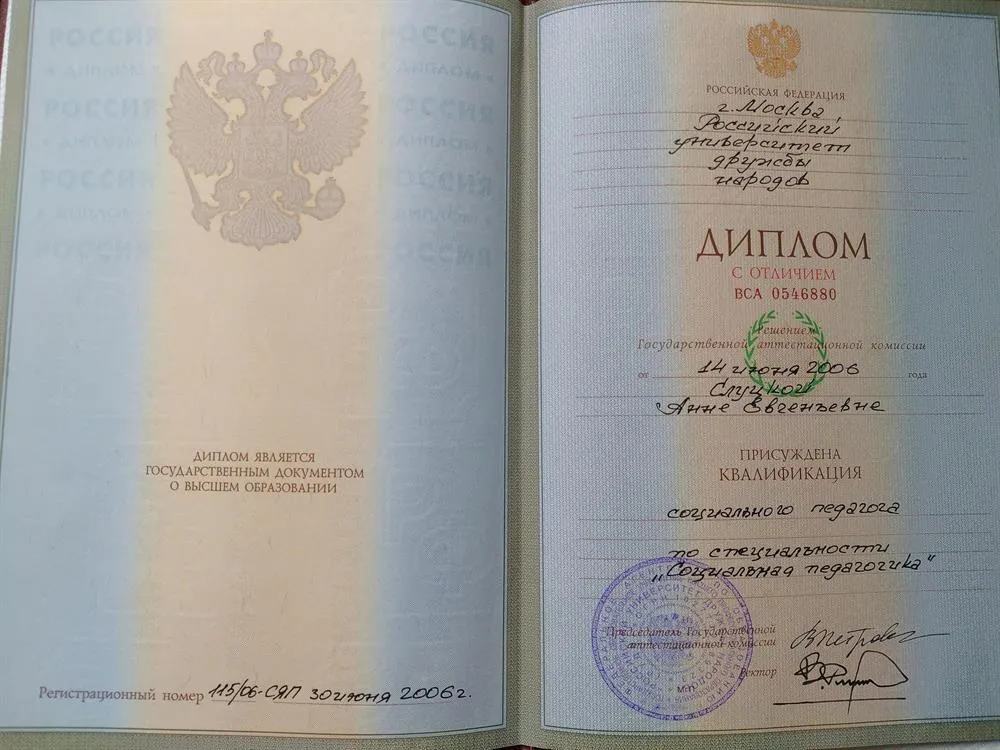 ДИПЛОМ ЯВЛЯЕТСЯ
ГОСУДАРСТВЕННЫМ ДОКУМЕНТОМ
О ВЫСШЕМ ОБРАЗОВАНИИ
Регистрационный номер 115/06-СЯП 30 июня 2006г.
РОССИЙСКАЯ ФЕДЕРАЦИЯ
г. Москва,
Российский
университет
дружбы
народов
ДИПЛОМ
С ОТЛИЧИЕМ
ВСА 0546880
Решением
Государственной аттестационной комиссии
от 14 июня 2006 года
Слуцкой
Анне Евгеньевне
ПРИСУЖДЕНА
КВАЛИФИКАЦИЯ
социального педагога
по специальности
„Социальная педагогика"
Председатель Государственной
аттестационной комиссии
Ректор